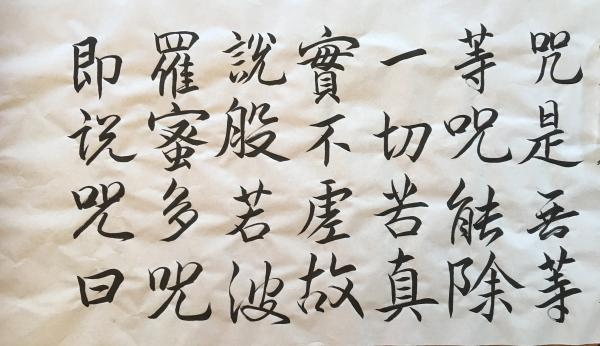 咒是無等
等咒能除
一切苦真
實不虛故
說般若波
羅蜜多咒
即說咒曰